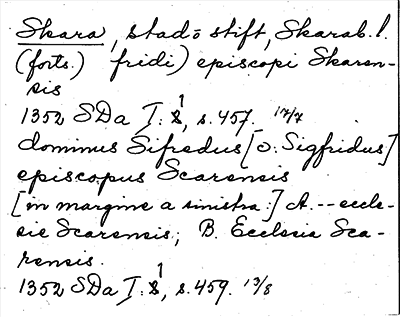 Skara, stad o stift, Skarab. l.
(forts.) fridi) episcopi Skaren-
sis
1352 SDa I: 1, s. 457. 17/7
dominus Sifredus [o: Sigfridus]
episcopus Scarensis
[in margine a sinistra:] A. -- eccle-
sie Scarensis; B. Ecclesia Sca-
rensis.
1352 SDa I: 1, s. 459. 13/8